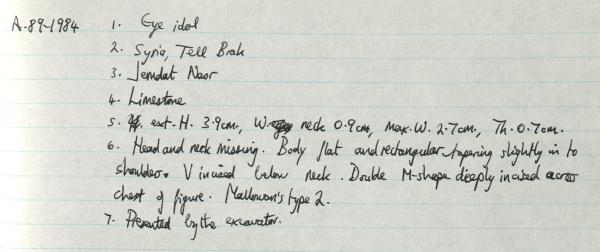 A.89-1984 1. Eye idol
2. Syria, Tell Brak
3. Jemdat Nasr
4. Limestone
5. ext. H. 3.9cm., W. neck 0.9cm, Max. W. 2.7cm, Th. 0.7cm.
6. Head and neck missing. Body flat and rectangular tapering slightly in to
shoulders. V incised below neck. Double M-shape deeply incised across
chest of figure. Mallowan's type 2.
7. Presented by the excavator.